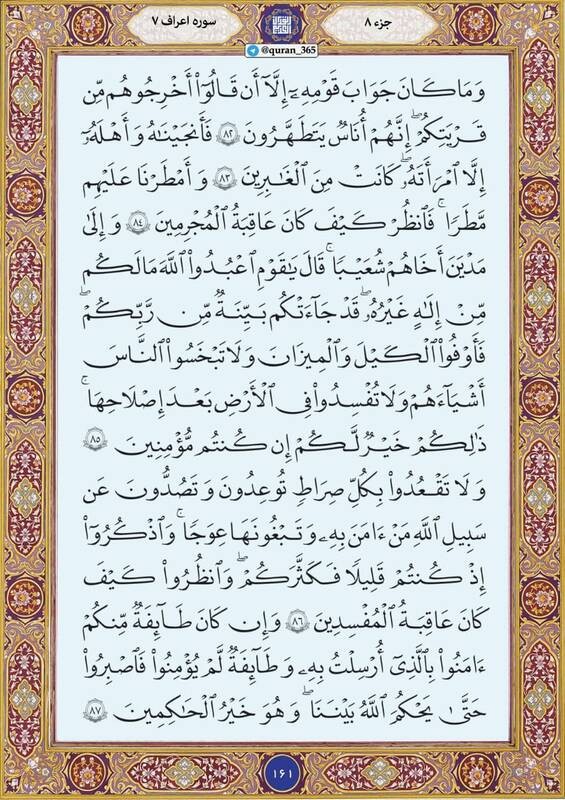 جزء ۸
سوره اعراف ۷
@quran_365
وَمَا كَانَ جَوَابَ قَوْمِهِۦٓ إِلَّآ أَن قَالُوٓا۟ أَخْرِجُوهُم مِّن
قَرْيَتِكُمْ ۖ إِنَّهُمْ أُنَاسٌ يَتَطَهَّرُونَ ۸۲ فَأَنجَيْنَٰهُ وَأَهْلَهُۥٓ
إِلَّا ٱمْرَأَتَهُۥ كَانَتْ مِنَ ٱلْغَٰبِرِينَ ۸۳ وَأَمْطَرْنَا عَلَيْهِم
مَّطَرًا ۖ فَٱنظُرْ كَيْفَ كَانَ عَاقِبَةُ ٱلْمُجْرِمِينَ ۸۴ وَإِلَىٰ
مَدْيَنَ أَخَاهُمْ شُعَيْبًا ۚ قَالَ يَٰقَوْمِ ٱعْبُدُوا۟ ٱللَّهَ مَا لَكُم
مِّنْ إِلَٰهٍ غَيْرُهُۥ ۖ قَدْ جَآءَتْكُم بَيِّنَةٌ مِّن رَّبِّكُمْ ۖ
فَأَوْفُوا۟ ٱلْكَيْلَ وَٱلْمِيزَانَ وَلَا تَبْخَسُوا۟ ٱلنَّاسَ
أَشْيَآءَهُمْ وَلَا تُفْسِدُوا۟ فِى ٱلْأَرْضِ بَعْدَ إِصْلَٰحِهَا ۚ
ذَٰلِكُمْ خَيْرٌ لَّكُمْ إِن كُنتُم مُّؤْمِنِينَ ۸۵
وَلَا تَقْعُدُوا۟ بِكُلِّ صِرَٰطٍ تُوعِدُونَ وَتَصُدُّونَ عَن
سَبِيلِ ٱللَّهِ مَنْ ءَامَنَ بِهِۦ وَتَبْغُونَهَا عِوَجًا ۚ وَٱذْكُرُوٓا۟
إِذْ كُنتُمْ قَلِيلًا فَكَثَّرَكُمْ ۖ وَٱنظُرُوا۟ كَيْفَ
كَانَ عَٰقِبَةُ ٱلْمُفْسِدِينَ ۸۶ وَإِن كَانَ طَآئِفَةٌ مِّنكُمْ
ءَامَنُوا۟ بِٱلَّذِىٓ أُرْسِلْتُ بِهِۦ وَطَآئِفَةٌ لَّمْ يُؤْمِنُوا۟ فَٱصْبِرُوا۟
حَتَّىٰ يَحْكُمَ ٱللَّهُ بَيْنَنَا ۚ وَهُوَ خَيْرُ ٱلْحَٰكِمِينَ ۸۷
۱۶۱